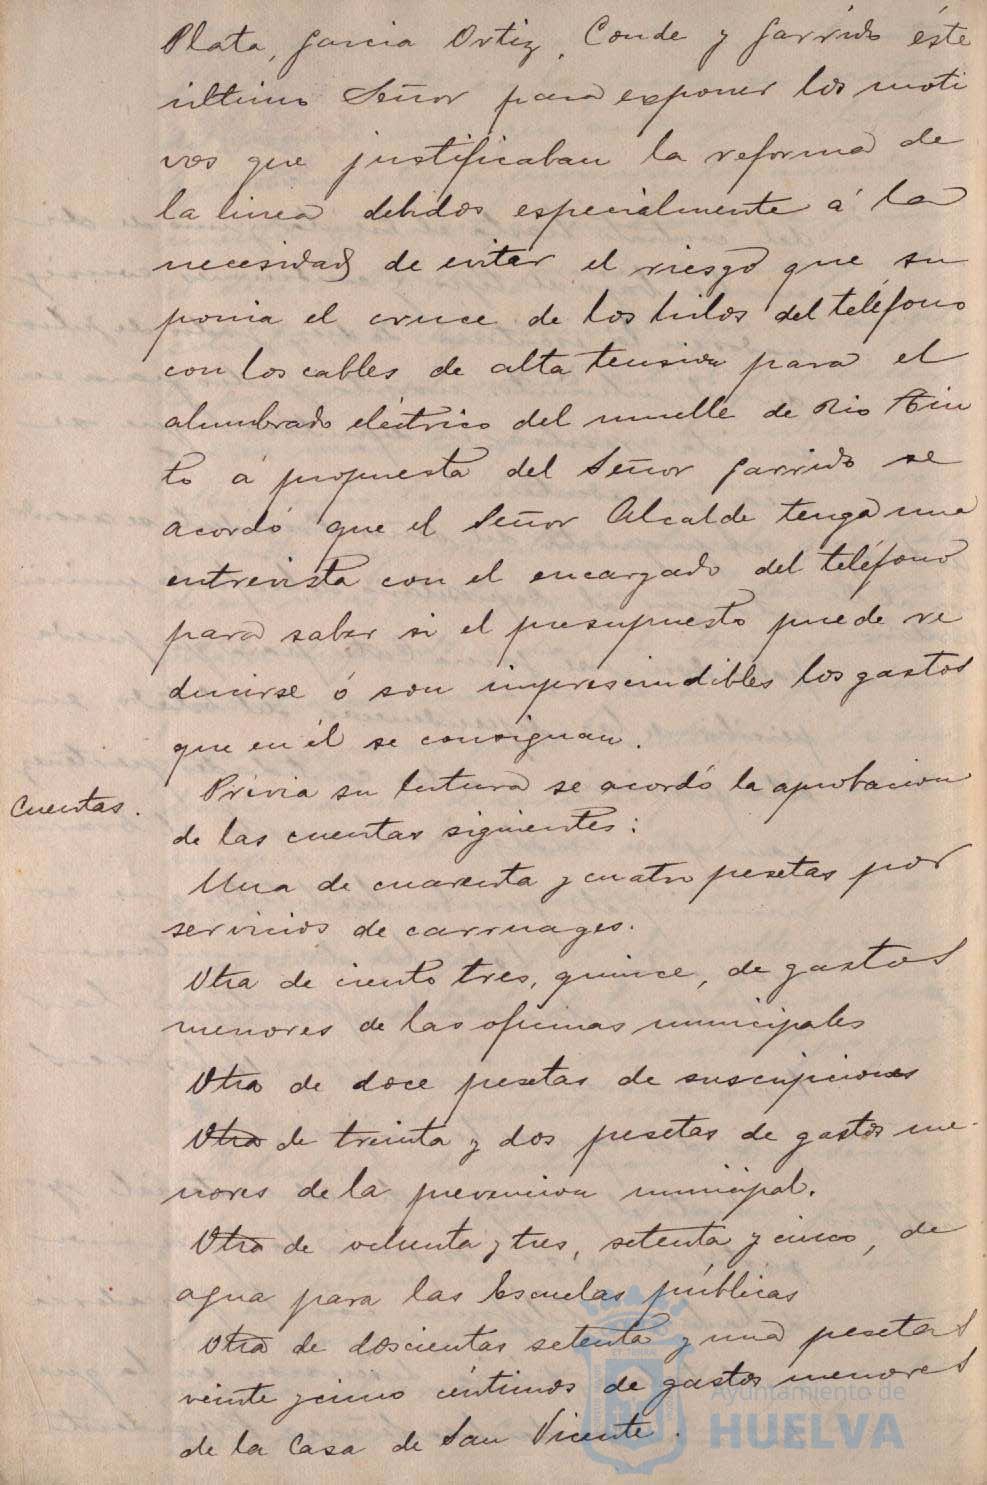 Plata, Garcia Ortiz, Conde y Garrido éste
último Señor para exponer los moti
vos que justificaban la reforma de
la linea debidos especialmente á la
necesidad de evitar el riesgo que su
ponia el cruce de los hilos del teléfono
con los cables de alta tension para el
alumbrado eléctrico del muelle de Rio Tin
to á propuesta del Señor Garrido se
acordó que el Señor Alcalde tenga una
entrevista con el encargado del teléfono
para saber si el presupuesto puede re
ducirse ó son imprescindibles los gastos
que en él se consignan.
Cuentas.
Prévia su lectura se acordó la aprobacion
de las cuentas siguientes:
Una de cuarenta y cuatro pesetas por
servicios de carruages.
Otra de ciento tres, quince, de gastos
menores de las oficinas municipales
Otra de doce pesetas de suscripciones
Otra de treinta y dos pesetas de gastos me-
nores de la prevencion municipal.
Otra de ochenta y tres, setenta y cinco, de
agua para las Escuelas públicas
Otra de doscientas setenta y una pesetas
veinte y cinco céntimos de gastos menores
de la Casa de San Vicente.
Ayuntamiento de
HUELVA